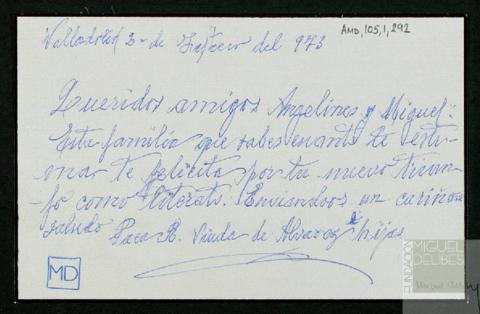 Valladolid 3- de Febrero del 973
AMD, 105, 1, 292
Queridos amigos Angelines y Miguel:
Esta familia que sabes cuanto te esti-
man te felicita por tu nuevo triun-
fo como literato. Enviandoos un cariñoso
saludo Paca R. Viuda de Alvarez e hijas
MD
FUNDACIÓN
MIGUEL
DELIBES